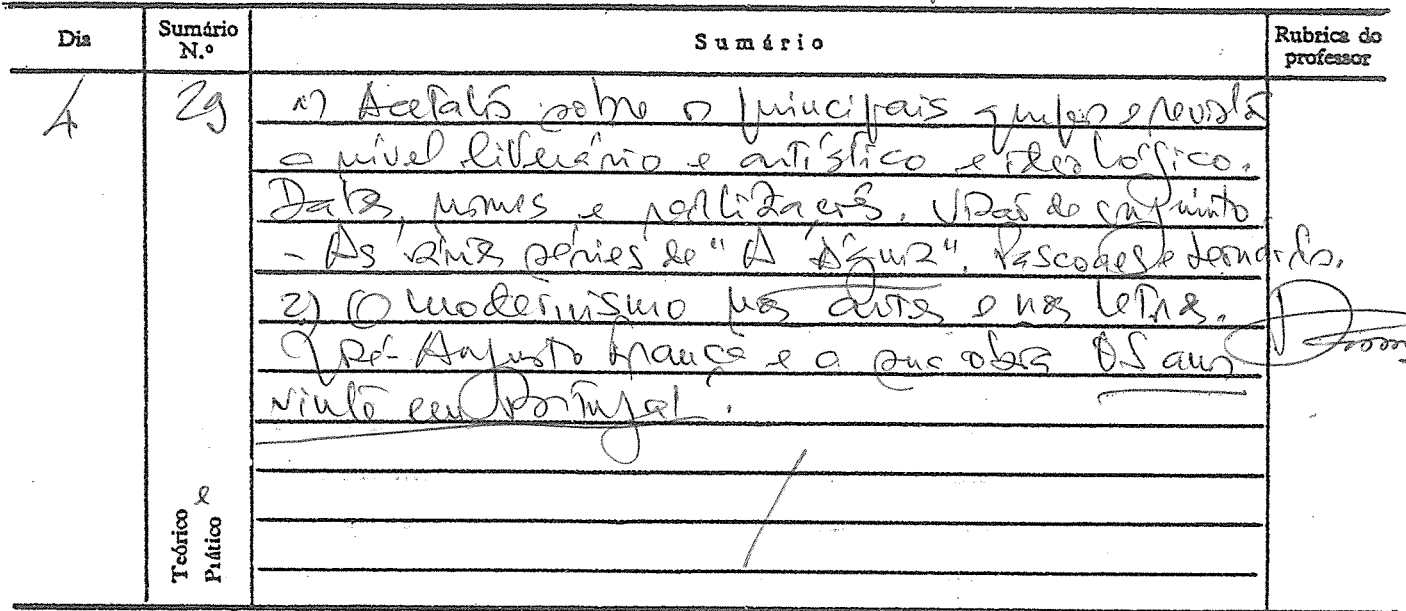 Dia Sumário N.º Sumário Rubrica do professor
4 29 1) Acetatos sobre os principais grupos e revistas
a nível literário e artístico e ideológico.
Datas, nomes e realizações. Visão de conjunto
- As várias séries de "A Águia". Pascoaes e Leonardo.
2) O modernismo nas artes e nas letras.
José-Augusto França e a sua obra Os anos
vinte em Portugal.
Teórico e
Prático